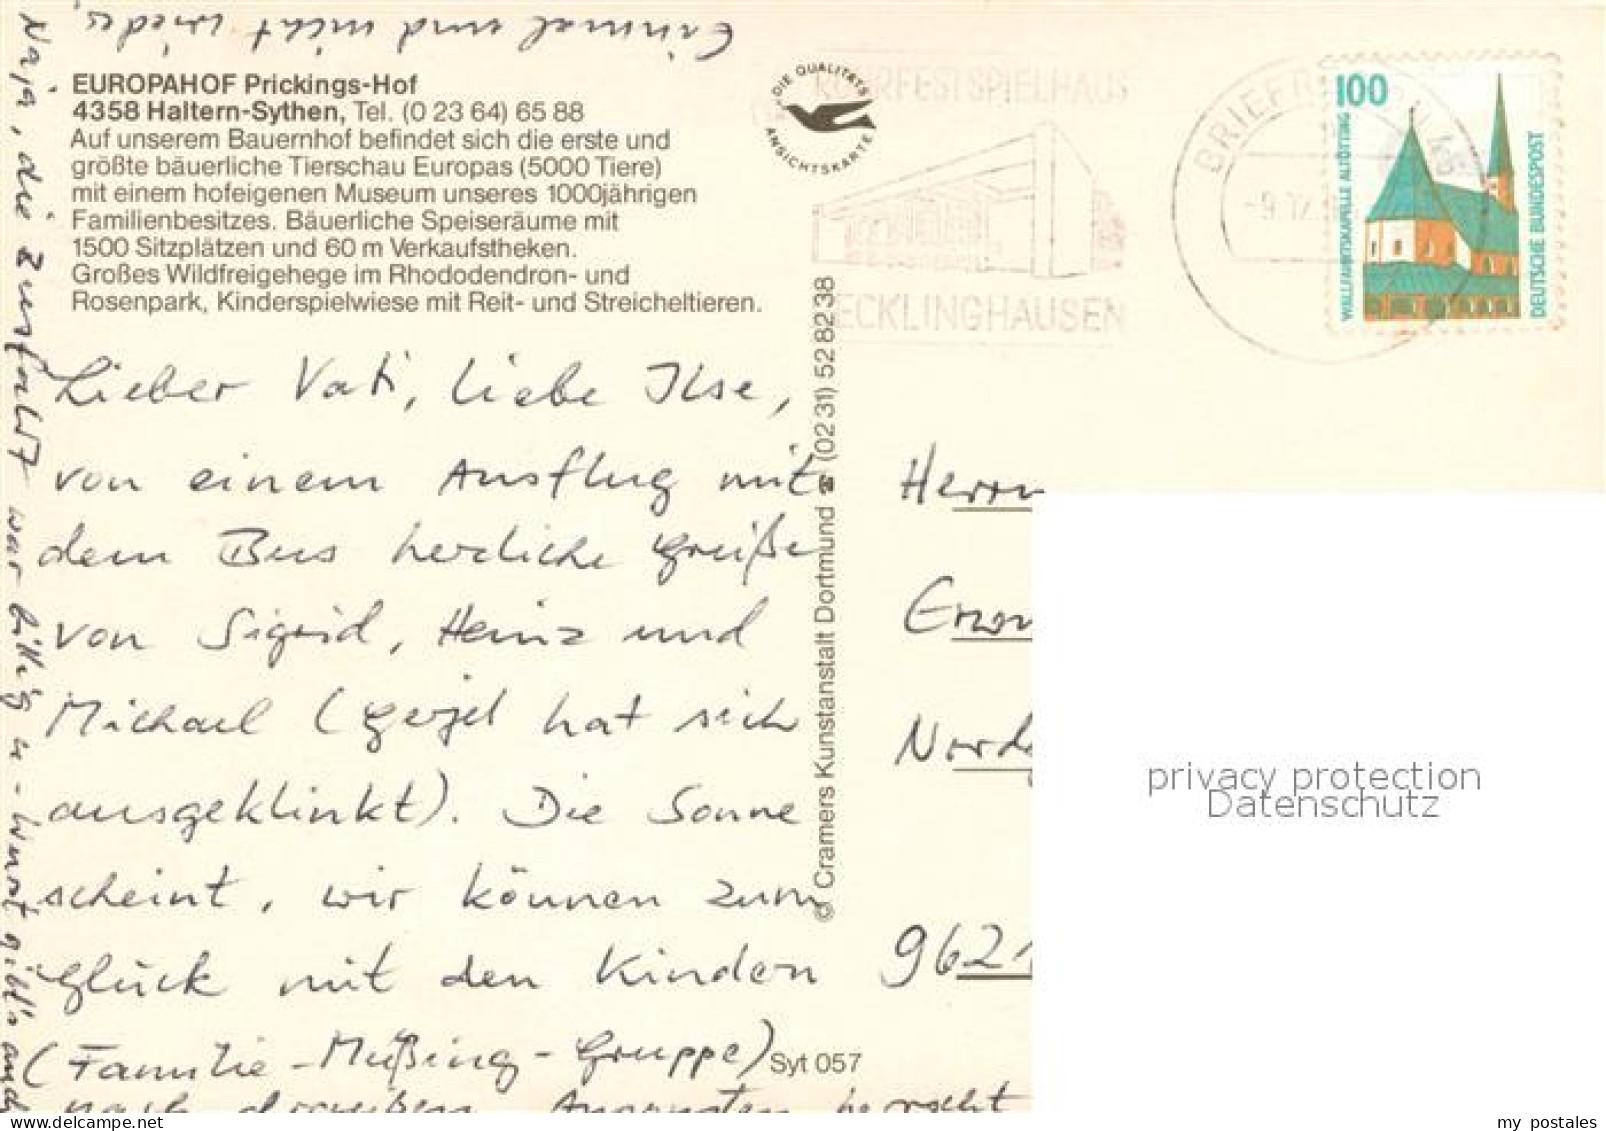 Einmal und nicht wieder,
EUROPAHOF Prickings-Hof
4358 Haltern-Sythen, Tel. (0 23 64) 65 88
Auf unserem Bauernhof befindet sich die erste und
größte bäuerliche Tierschau Europas (5000 Tiere)
mit einem hofeigenen Museum unseres 1000jährigen
Familienbesitzes. Bäuerliche Speiseräume mit
1500 Sitzplätzen und 60 m Verkaufstheken.
Großes Wildfreigehege im Rhododendron- und
Rosenpark, Kinderspielwiese mit Reit- und Streicheltieren.
Lieber Vati, liebe Ilse,
von einem Ausflug mit
dem Bus herzliche Grüße
von Sigrid, Heinz und
Michael (
hat sich
ausgeklinkt). Die Sonne
scheint, wir können zum
Glück mit den Kindern
(Familie - Meßing - Gruppe)
nach draußen. Ansonsten herrscht
Naja, die Busfahrt war billig u - Wurst gibt's auch
DIE QUALITÄTS
ANSICHTSKARTE
© Cramers Kunstanstalt Dortmund ☎ (02 31) 52 82 38
Syt 057
RUHRFESTSPIELHAUS
RECKLINGHAUSEN
BRIEFR
-9.12.
100
WALLFAHRTSKAPELLE ALTÖTTING
DEUTSCHE BUNDESPOST
Herrn
Erwin
Nord
9621
privacy protection
Datenschutz
delcampe.net
my_postales